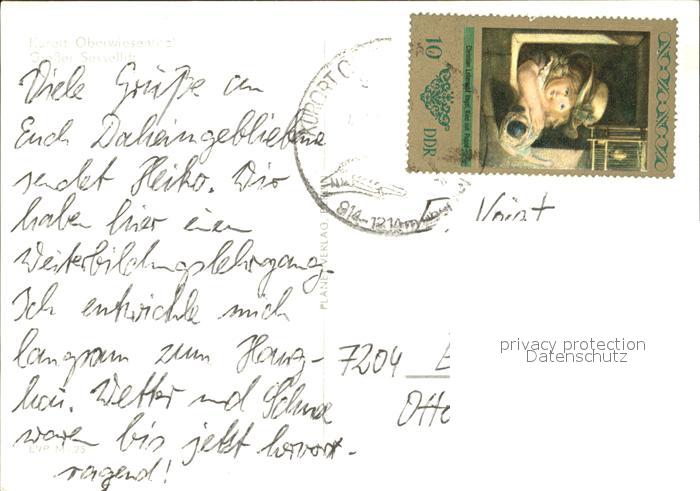 Kurort Oberwiesenthal
Großer Sessellift
Viele Grüße an
Euch Daheingebliebene
sendet Heiko. Wir
haben hier einen
Weiterbildungslehrgang.
Ich entwickle mich
langsam zum
Wetter und Schnee
waren bis jetzt hervor-
ragend!
EVP M -,25
PLANET-VERLAG
KURORT O
914-12
10
DDR
Voigt
7204
Otte
privacy protection
Datenschutz